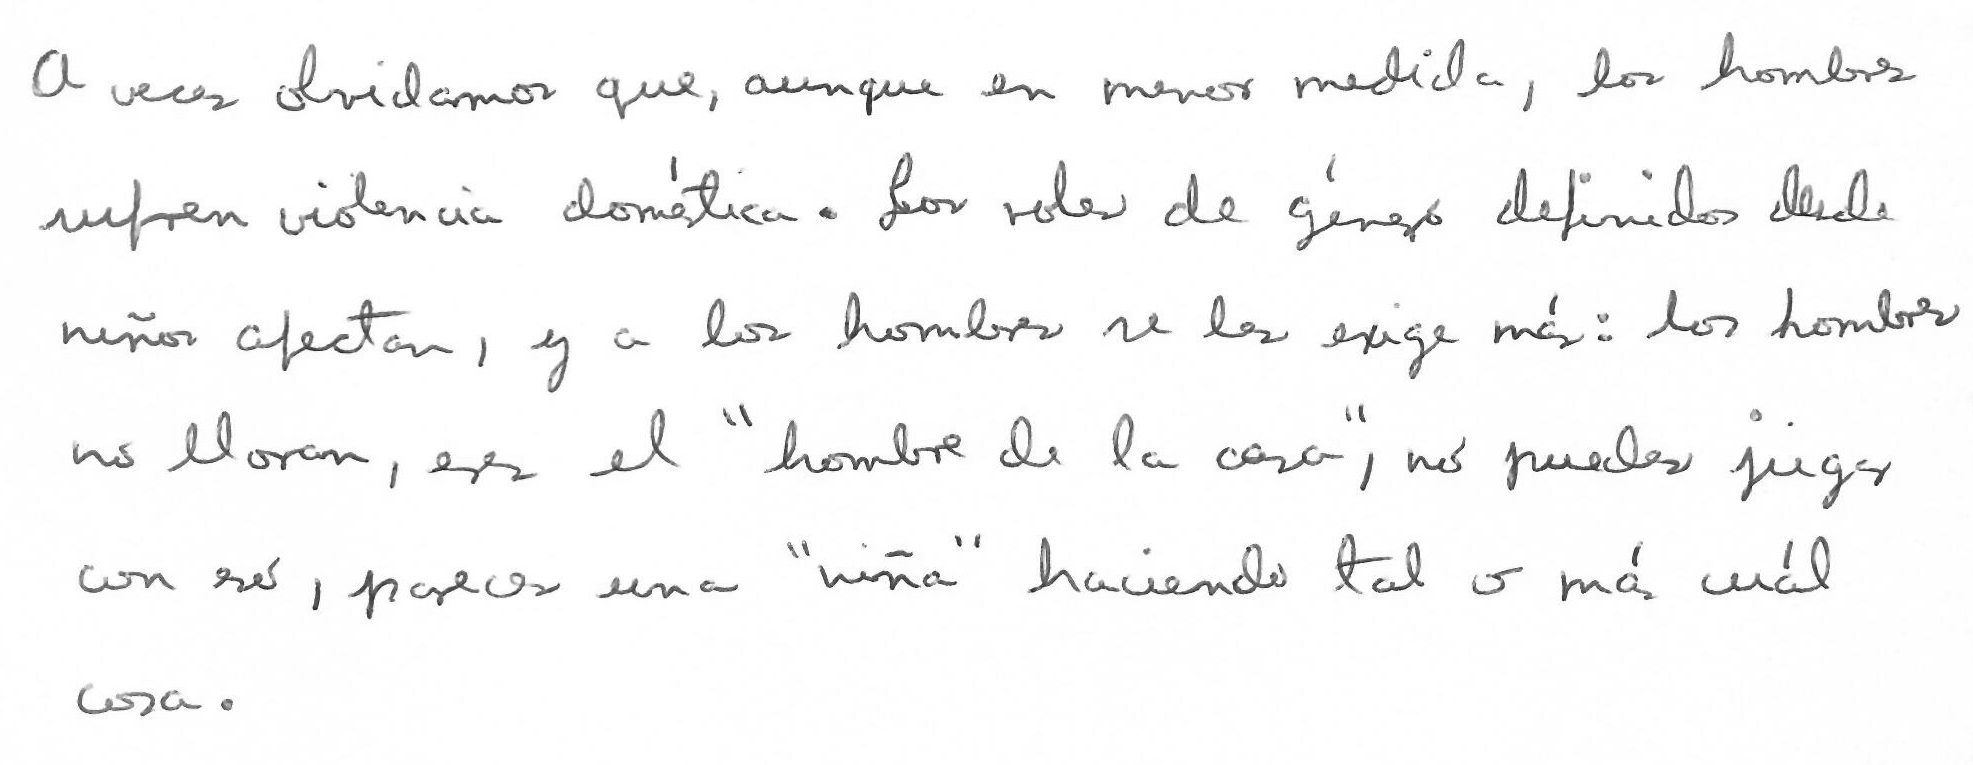 A veces olvidamos que, aunque en menor medida, los hombres
sufren violencia doméstica. Los roles de género definidos desde
niños afectan, y a los hombres se les exige más: los hombres
no lloran, eres el "hombre de la casa", no puedes jugar
con eso, pareces una "niña" haciendo tal o más cuál
cosa.